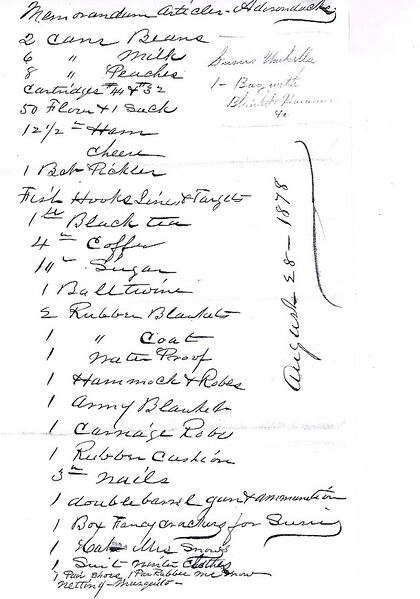 Memorandum Articles - Adirondacks
2 Cans Beans
6 " Milk
8 " Peaches
Cartridges #44 & 32
50 Flour & 1 Sack
12 1/2 " Ham
Cheese
1 Bot Pickles
Fish Hooks Lines & Targets
1 lb Black tea
4 " Coffee
" Sugar
1 Ball twine
2 Rubber Blankets
1 " Coat
1 Water Proof
1 Hammock & Robes
1 Army Blanket
1 Carriage Robe
1 Rubber Cushion
3 " nails
1 double barrel gun & ammunition
1 Box Fancy Crackers for
1 Mrs Snow's
1 Suit winter Clothes
1 Pair Shoes 1 Pair Rubber Mc Snow
netting - Mosquito -
Umbrella
1 - Bag with
August 28 - 1878